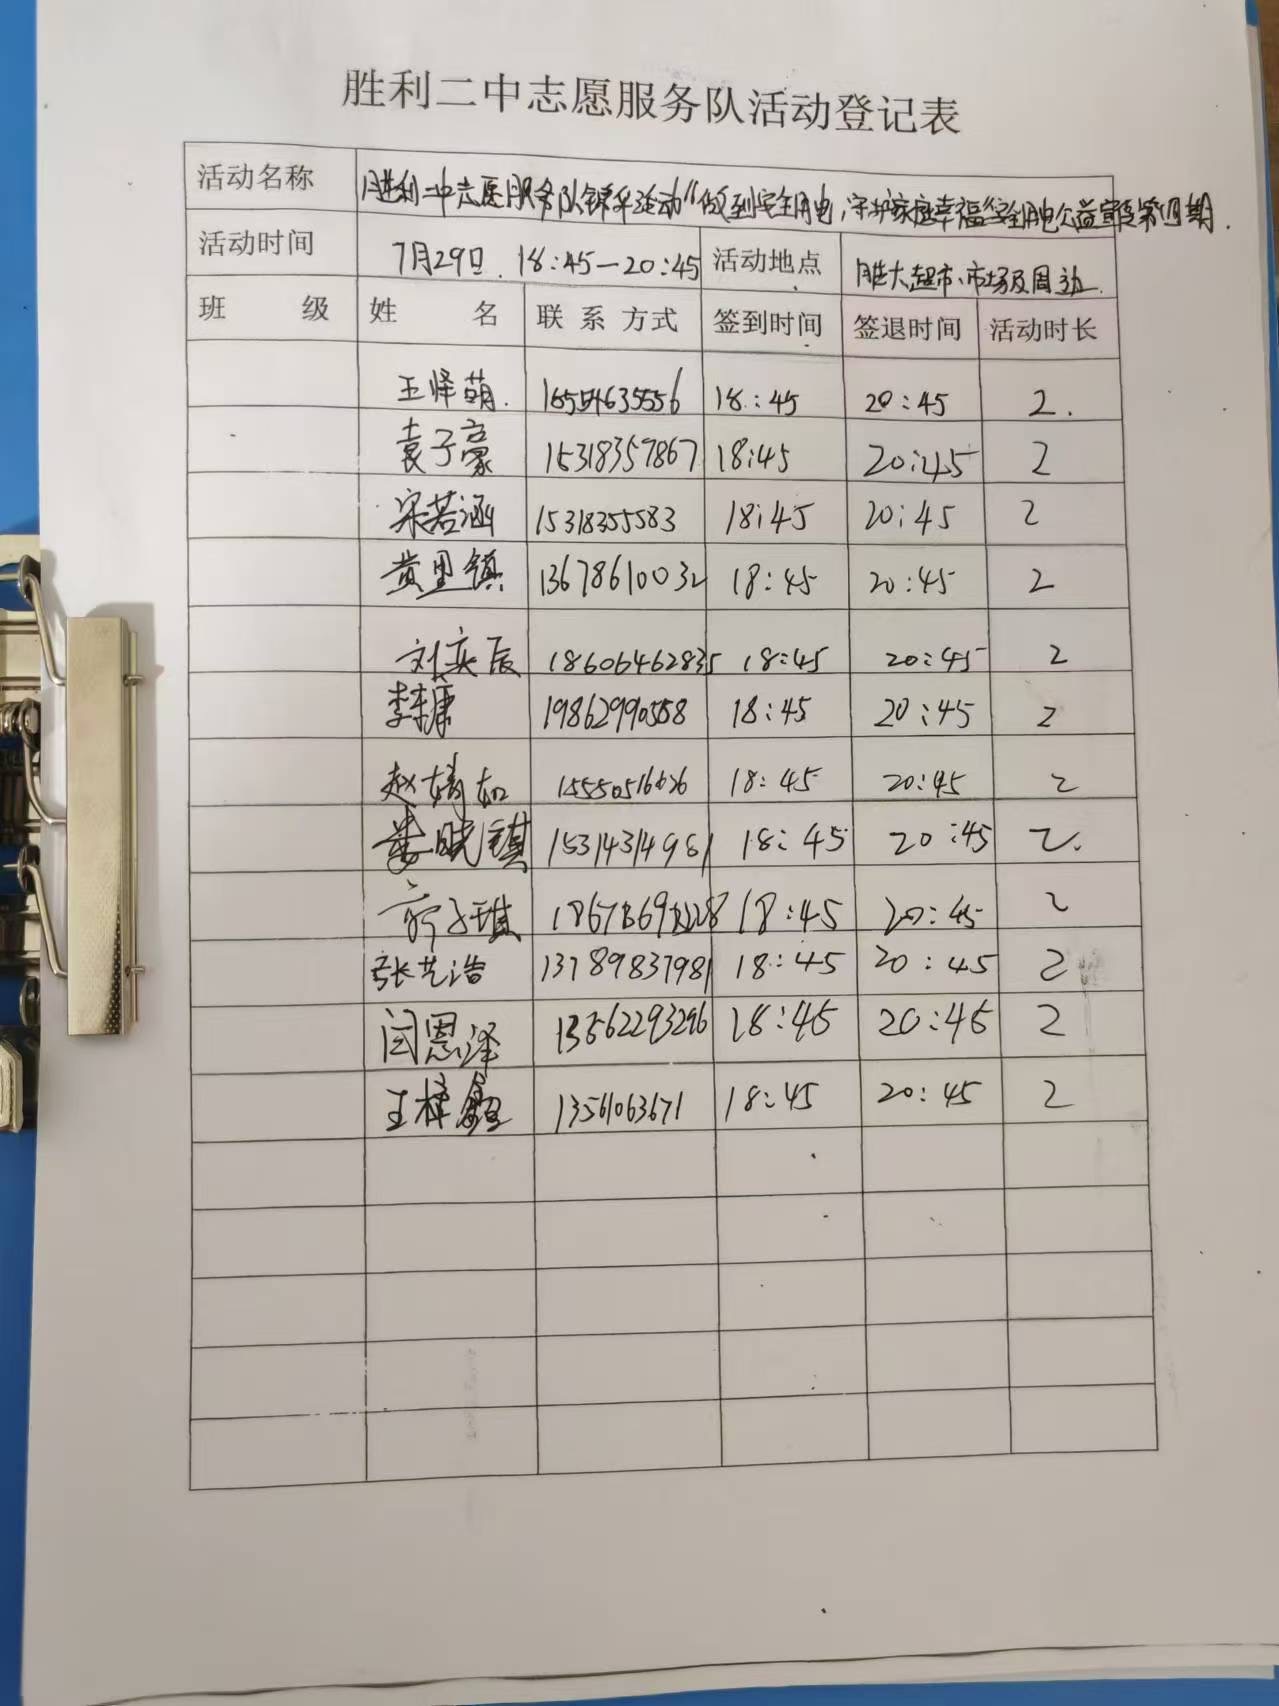 胜利二中志愿服务队活动登记表
活动名称 胜利二中志愿服务队锦华活动"做到安全用电,守护家庭幸福"安全用电公益宣传第四期.
活动时间 7月29日. 18:45—20:45 活动地点 胜大超市、市场及周边.
班 级 姓 名 联系方式 签到时间 签退时间 活动时长
王怿萌. 18:45 20:45 2.
袁子豪 15318357867 18:45 20:45 2
宋若涵 15318355583 18:45 20:45 2
黄里镇 13678610032 18:45 20:45 2
刘奕辰 18606462835 18:45 20:45 2
李康 19862990558 18:45 20:45 2
赵婧如 18:45 20:45 2
娄晓镇 15314314981 18:45 20:45 2.
18:45 20:45 2
张艺浩 13789837981 18:45 20:45 2
闫恩泽 13562293296 18:45 20:45 2
王梓鑫 13561063671 18:45 20:45 2